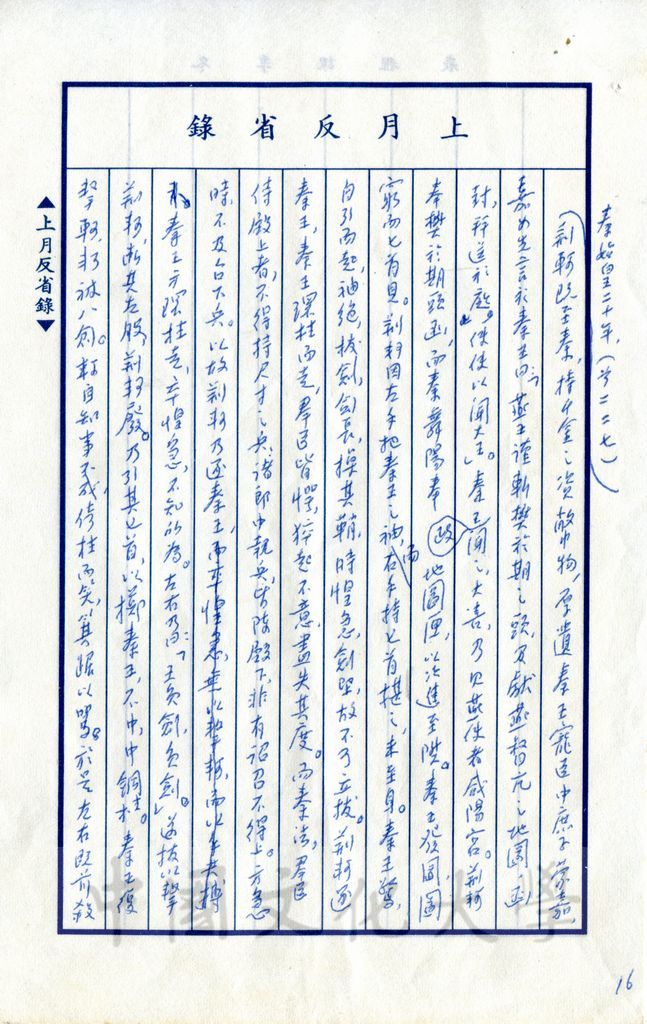 錄省反月上
秦始皇二十年，(前二二七)
荊軻既至秦，持千金之資幣物，厚遺秦王寵臣中庶子蒙嘉，
嘉為先言於秦王曰「燕王謹斬樊於期之頭，及獻燕督亢之地圖，函
封，拜送於庭，使使以聞大王」。秦王聞之大喜，乃見燕使者咸陽宮。荊軻
奉樊於期頭函，而秦舞陽奉地圖匣，以次進至陛。秦王發圖，圖
政
窮而匕首見。荊軻因左手把秦王之袖，而右手持匕首揕之，未至身。秦王驚，
自引而起，袖絕，拔劍，劍長，操其鞘，時惶急，劍堅，故不可立拔。荊軻逐
秦王，秦王環柱而走，群臣皆愕，猝起不意，盡失其度。而秦法，群臣
侍殿上者，不得持尺寸之兵，諸郎中執兵，皆陳殿下，非有詔召不得上。方急
時，不及召下兵。以故荊軻乃逐秦王，而卒惶急，無以擊軻，而以手共搏
秦王方環柱走，卒惶急，不知所為。左右乃曰「王負劍，負劍」。遂拔以擊
荊軻，斷其左股，荊軻廢。乃引其匕首，以擲秦王，不中，中銅柱。秦王復
擊軻，軻被八創。軻自知事不成，倚柱而笑，箕踞以罵。於是左右既前殺
▲上月反省錄▼
中國文化大學
16